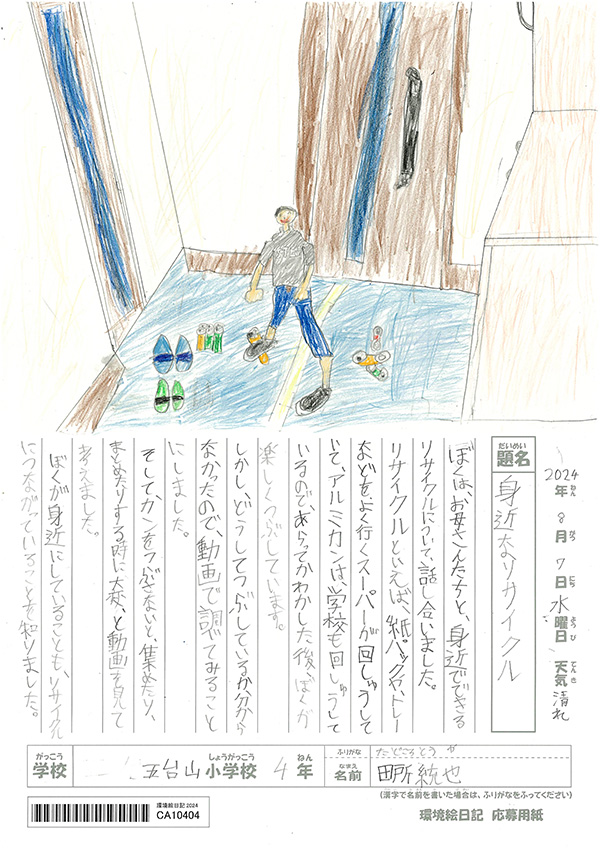 2024年 8月 7日 水曜日 天気 晴れ
ねん がつ にち ようび てんき
だいめい
題名 身近なリサイクル
ぼくは、お母さんたちと、身近でできる
リサイクルについて、話し合いました。
リサイクルといえば、紙パックや、トレー
などをよく行くスーパーが回しゅうして
いて、アルミカンは、学校も回しゅうして
いるので、あらってかわかした後、ぼくが
楽しくつぶしています。
しかし、どうしてつぶしているか、分から
なかったので、動画で調べてみること
にしました。
そして、カンをつぶさないと、集めたり、
まとめたりする時に大変、と動画を見て
考えました。
ぼくが身近にしていることも、リサイクル
につながっていることを知りました。
がっこう しょうがっこう ねん
学校 五台山小学校 4年
ふりがな たどころとうや
なまえ
名前 田所統也
(漢字で名前を書いた場合は、ふりがなをふってください)
環境絵日記2024
CA10404
環境絵日記 応募用紙